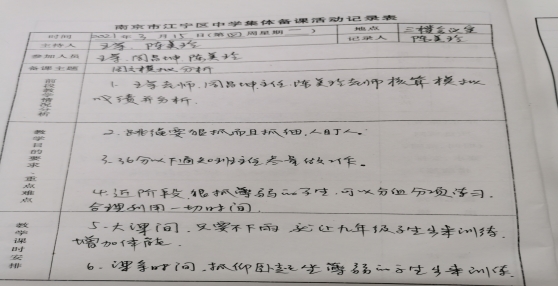 南京市江宁区中学集体备课活动记录表
时间 2021年3月15日(第四周星期一) 地点 三楼会议室
主持人 王荐、陈美玲 记录人 陈美玲
参加人员 王荐、闾昌坤、陈美玲
备课主题 一次模拟分析
前段教学情况分析 1. 王荐老师、闾昌坤主任、陈美玲老师核算模拟
成绩并分析。
教学目的要求、重点难点 2. 跳绳要狠抓而且抓细,人盯人。
3. 36分以下通知班主任参与做工作。
4. 近阶段,狠抓薄弱的学生,可以分组分项学习,
合理利用一切时间。
教学课时安排 5. 大课间,只要不下雨,必让九年级学生出来训练,
增加体能。
6. 课务时间,抓仰卧起坐薄弱的学生来训练。